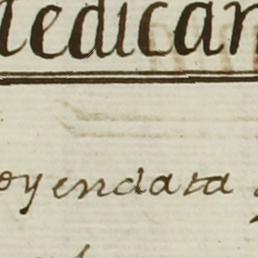 edican
oyendata